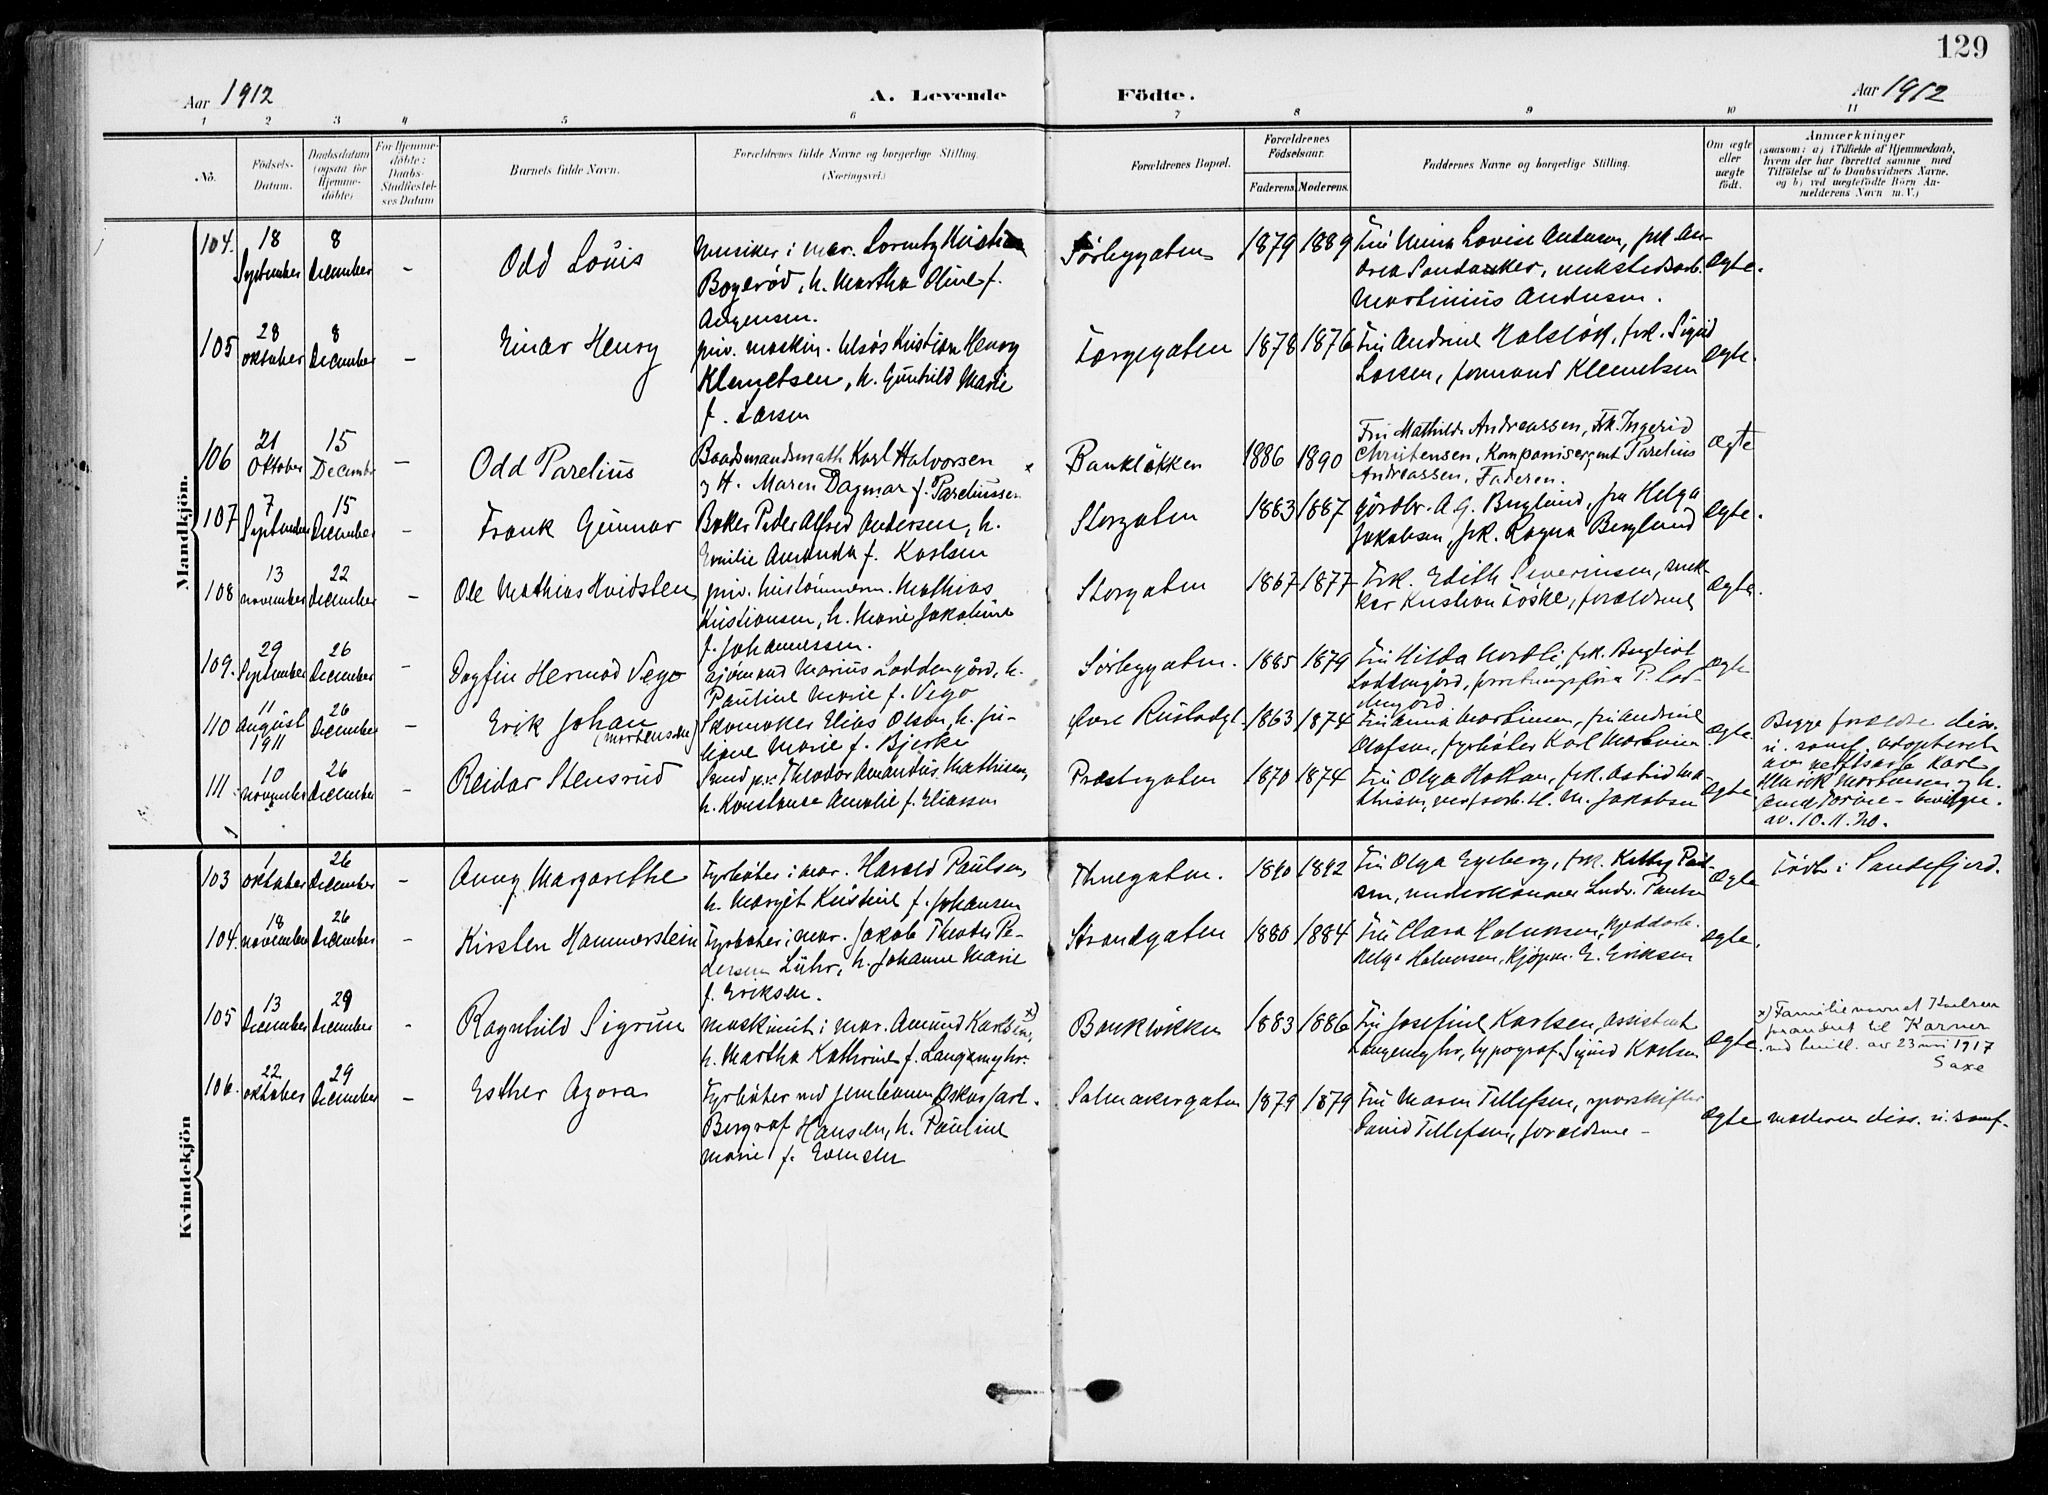 129
Aar 1912
A. Levende Födte.
Aar 1912
1 2 3 4 5 6 7 8 9 10 11
No.
Födsels-Datum.
Daabsdatum (ogsaa for Hjemmedöbte)
For Hjemmedöbte: Daabs-Stadfæstelses Datum
Barnets fulde Navn.
Forældrenes fulde Navne og borgerlige Stilling.
(Næringsvei.)
Forældrenes Bopæl.
Forældrenes Födselsaar.
Faderens. Moderens.
Faddernes Navne og borgerlige Stilling.
Om ægte eller uægte födt.
Anmærkninger
(saasom: a) i Tilfælde af Hjemmedaab,
hvem der har forrettet samme, med
Tilföielse af to Daabsvidners Navne,
og b) ved uægtefödte Börn An-
melderens Navn m. V.)
Mandkjön.
104. 18 September 8 December - Odd Louis
Musiker i mar. Lorentz Kristian
Bogerød, h. Martha Oline f.
Jørgensen.
Sørbyggaten 1879 1889
Fru Mina Lovise Andersen, frk. An-
drea Sandaker, verkstedsarb.
Martinius Andersen.
ægte.
105 28 oktober 8 December - Einar Henry
priv. maskin. Kristian Henry
Klemetsen, h. Gunhild Marie
f. Larsen
Torvegaten 1878 1876
Fru Andrine Holsløkk, frk. Sigrid
Larsen, formand Klemetsen
ægte.
106 21 Oktober 15 December - Odd Parelius
Baadsmandsmath Karl Halvorsen
og H. Maren Dagmar f. Pareliussen
Bankløkken 1886 1890
Fru Mathilde Andreassen, Frk. Ingerid
Christensen, Kompanisergent Parelius
Andreassen, Faderen.
ægte
107 7 September 15 December - Frank Gunnar
Baker Peder Alfred Andersen, h.
Emilie Amanda f. Karlsen
Storgaten 1883 1887
Gördbr. A. G. Berglund, fru Helga
Jakobsen, frk. Ragna Berglund
ægte.
108 13 november 22 December - Ole Mathias Hvidsten
priv. hustømmerm. Mathias
Kristiansen, h. Marie Jakobine
f. Johannessen.
Storgaten 1867 1877
Frk. Edith Severinsen, snek-
ker Kristian Foske, forældrene
ægte.
109. 29 September 26 December - Dagfin Hermod Vego
Sjömand Marius Loddengård, h.
Pauline Marie f. Vego
Sørbyggaten. 1885 1879
Fru Hilda Nordli, frk. Bergliot
Loddengård, forretningsfører P. Lod-
dengård
ægte
110 11 August 1911 26 December - Erik Johan
(Mortensen)
Skomaker Elias Olsen, h. Ju-
liane Marie f. Bjerke
Øvre Rustadgt. 1863 1874
Fru Anna Martinsen, fru Andrine
Olafsen, fyrbøter Karl Martinsen
ægte.
Begge forældre diss.
u. samf. adopteret
av verftsarb. Karl
Mortensen og h.
- bevilgn.
av. 10. 11. 20.
111 10 november 26 December Reidar Stensrud
Smed Theodor Amandus Mathisen,
h. Konstanse Amalie f. Eliassen
Prestegaten 1870 1874
Fru Olga Hokan, frk. Astrid Ma-
thisen, verfsarb. H. M. Jakobsen
ægte.
Kvindekjön
103 1 oktober 26 December - Anny Margarethe
Fyrbøter i mar. Harald Paulsen,
h. Margit Kristine f. Johansen
Thuegaten. 1890 1892
Fru Olga Egeberg, frk. Kathy Paul-
sen, underkanoner Ludv. Paulsen
Ægte
Födt i Sandefjord.
104. 18 november 26 December - Kirsten Hammerstein
Fyrbøter i mar. Jakob Theodor Pe-
dersen Lühr, h. Johanne Marie
f. Eriksen.
Strandgaten 1880 1884
Fru Clara Halvorsen,
Helga Halvorsen, Kjøpm. E. Eriksen
ægte.
105 13 December 29 December - Ragnhild Sigrun
Maskinist i mar. Amund Karlsen x),
h. Martha Kathrine f. Langemyhr.
Bankløkken 1883 1886
Fru Josefine Karlsen, assistent
Langemyhr, typograf Sigurd Karlsen
ægte.
x) Familienavnet Karlsen
forandret til Karner
ved bevill. av 23 mai 1917
Saxe
106. 22 oktober 29 December - Esther Azora
Fyrbøter ved jernbanen Oskar Jarl
Bergraf Hansen, h. Pauline
Marie f. Evensen
Salmakergaten 1879 1879
Fru Maren Tellefsen, sporskifter
David Tellefsen, forældrene -
ægte
moderen diss. u. samf.